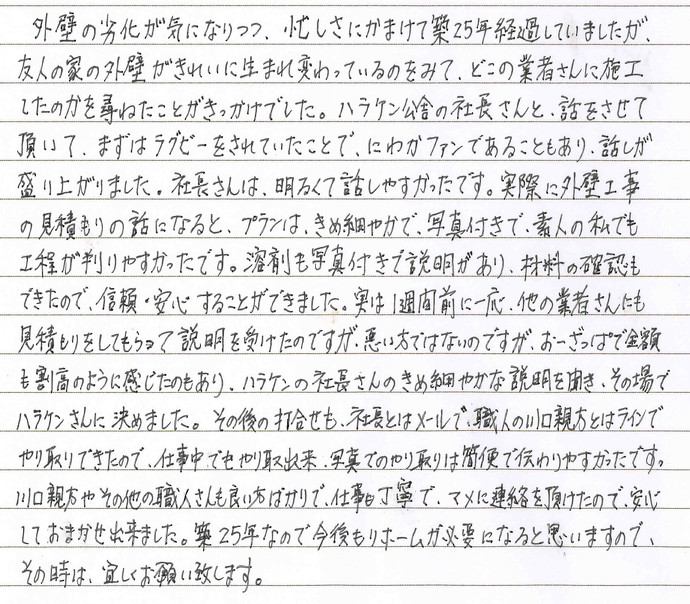 外壁の劣化が気になりつつ、忙しさにかまけて築25年経過していましたが、
友人の家の外壁がきれいに生まれ変わっているのをみて、どこの業者さんに施工
したのかを尋ねたことがきっかけでした。ハラケン公舎の社長さんと、話をさせて
頂いて、まずはラグビーをされていたことで、にわかファンであることもあり、話しが
盛り上がりました。社長さんは、明るくて話しやすかったです。実際に外壁工事
の見積もりの話になると、プランは、きめ細やかで、写真付きで、素人の私でも
工程が判りやすかったです。溶剤も写真付きで説明があり、材料の確認も
できたので、信頼・安心することができました。実は1週間前に一応、他の業者さんにも
見積もりをしてもらって説明を受けたのですが、悪い方ではないのですが、おーざっぱで金額
も割高のように感じたのもあり、ハラケンの社長さんのきめ細やかな説明を聞き、その場で
ハラケンさんに決めました。その後の打合せも、社長とはメールで、職人の川口親方とはラインで
やり取りできたので、仕事中でもやり取出来、写真でのやり取りは簡便で伝わりやすかったです。
川口親方やその他の職人さんも良い方ばかりで、仕事も丁寧で、マメに連絡を頂けたので、安心
しておまかせ出来ました。築25年なので今後もリホームが必要になると思いますので、
その時は、宜しくお願い致します。